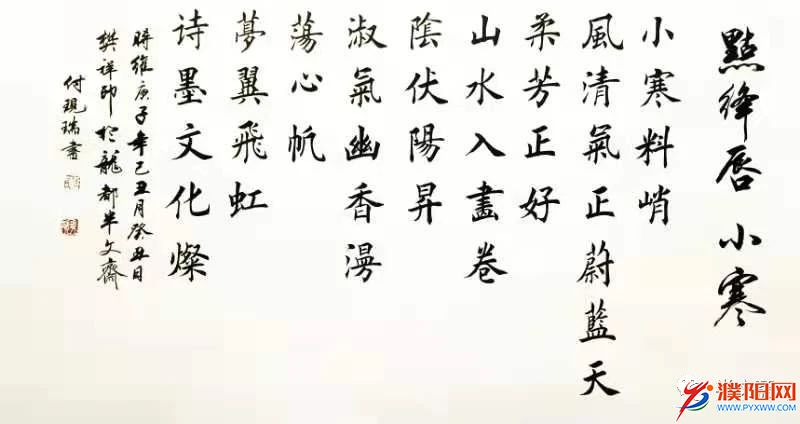 點绛唇 小寒
小寒料峭
風清氣正蔚藍天
柔芳正好
山水入畫卷
陰伏陽昇
淑氣幽香漫
蕩心帆
夢翼飛虹
诗墨文化燦
時維庚子年己丑月癸丑日
樊祥印於龍都半文齋
付現瑞書
濮阳网
WWW.PYXWW.COM